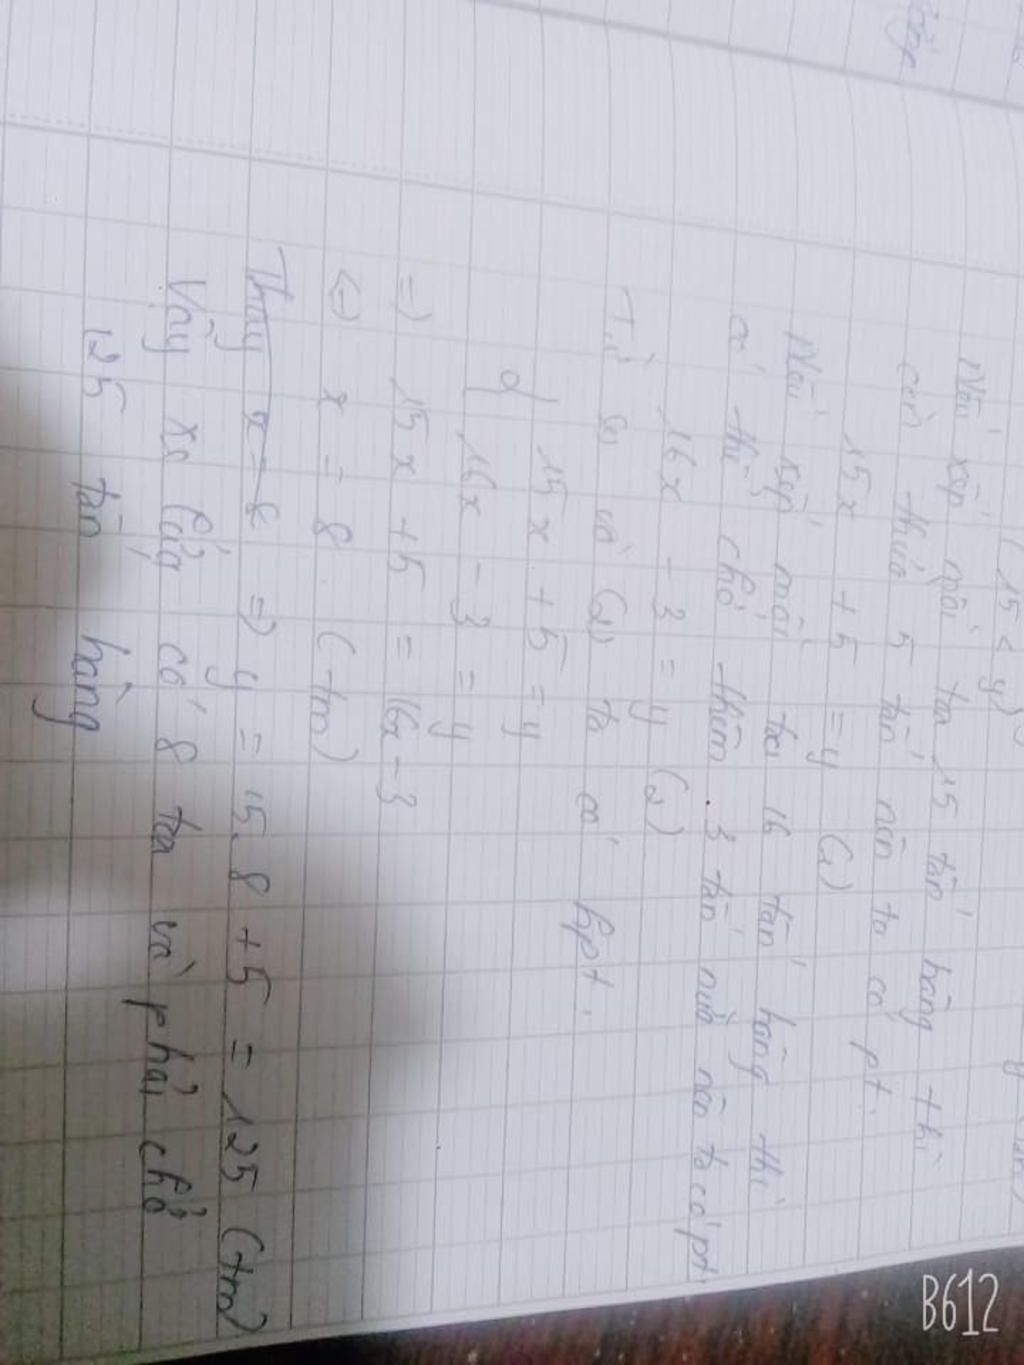 (15 < y)
Nếu xếp mỗi toa 15 tấn hàng thì
còn thừa 5 tấn nên ta có pt
15x + 5 = y (1)
Nếu xếp mỗi toa 16 tấn hàng thì
có thể chở thêm 3 tấn nữa nên ta có pt
16x - 3 = y (2)
Từ (1) và (2) ta có hpt.
{ 15x + 5 = y
16x - 3 = y
=) 15x + 5 = 16x - 3
(=) x = 8 (tm)
Thay x = 8 => y = 15.8 + 5 = 125 (tm)
Vậy xe lửa có 8 toa và phải chở
125 tấn hàng
B612